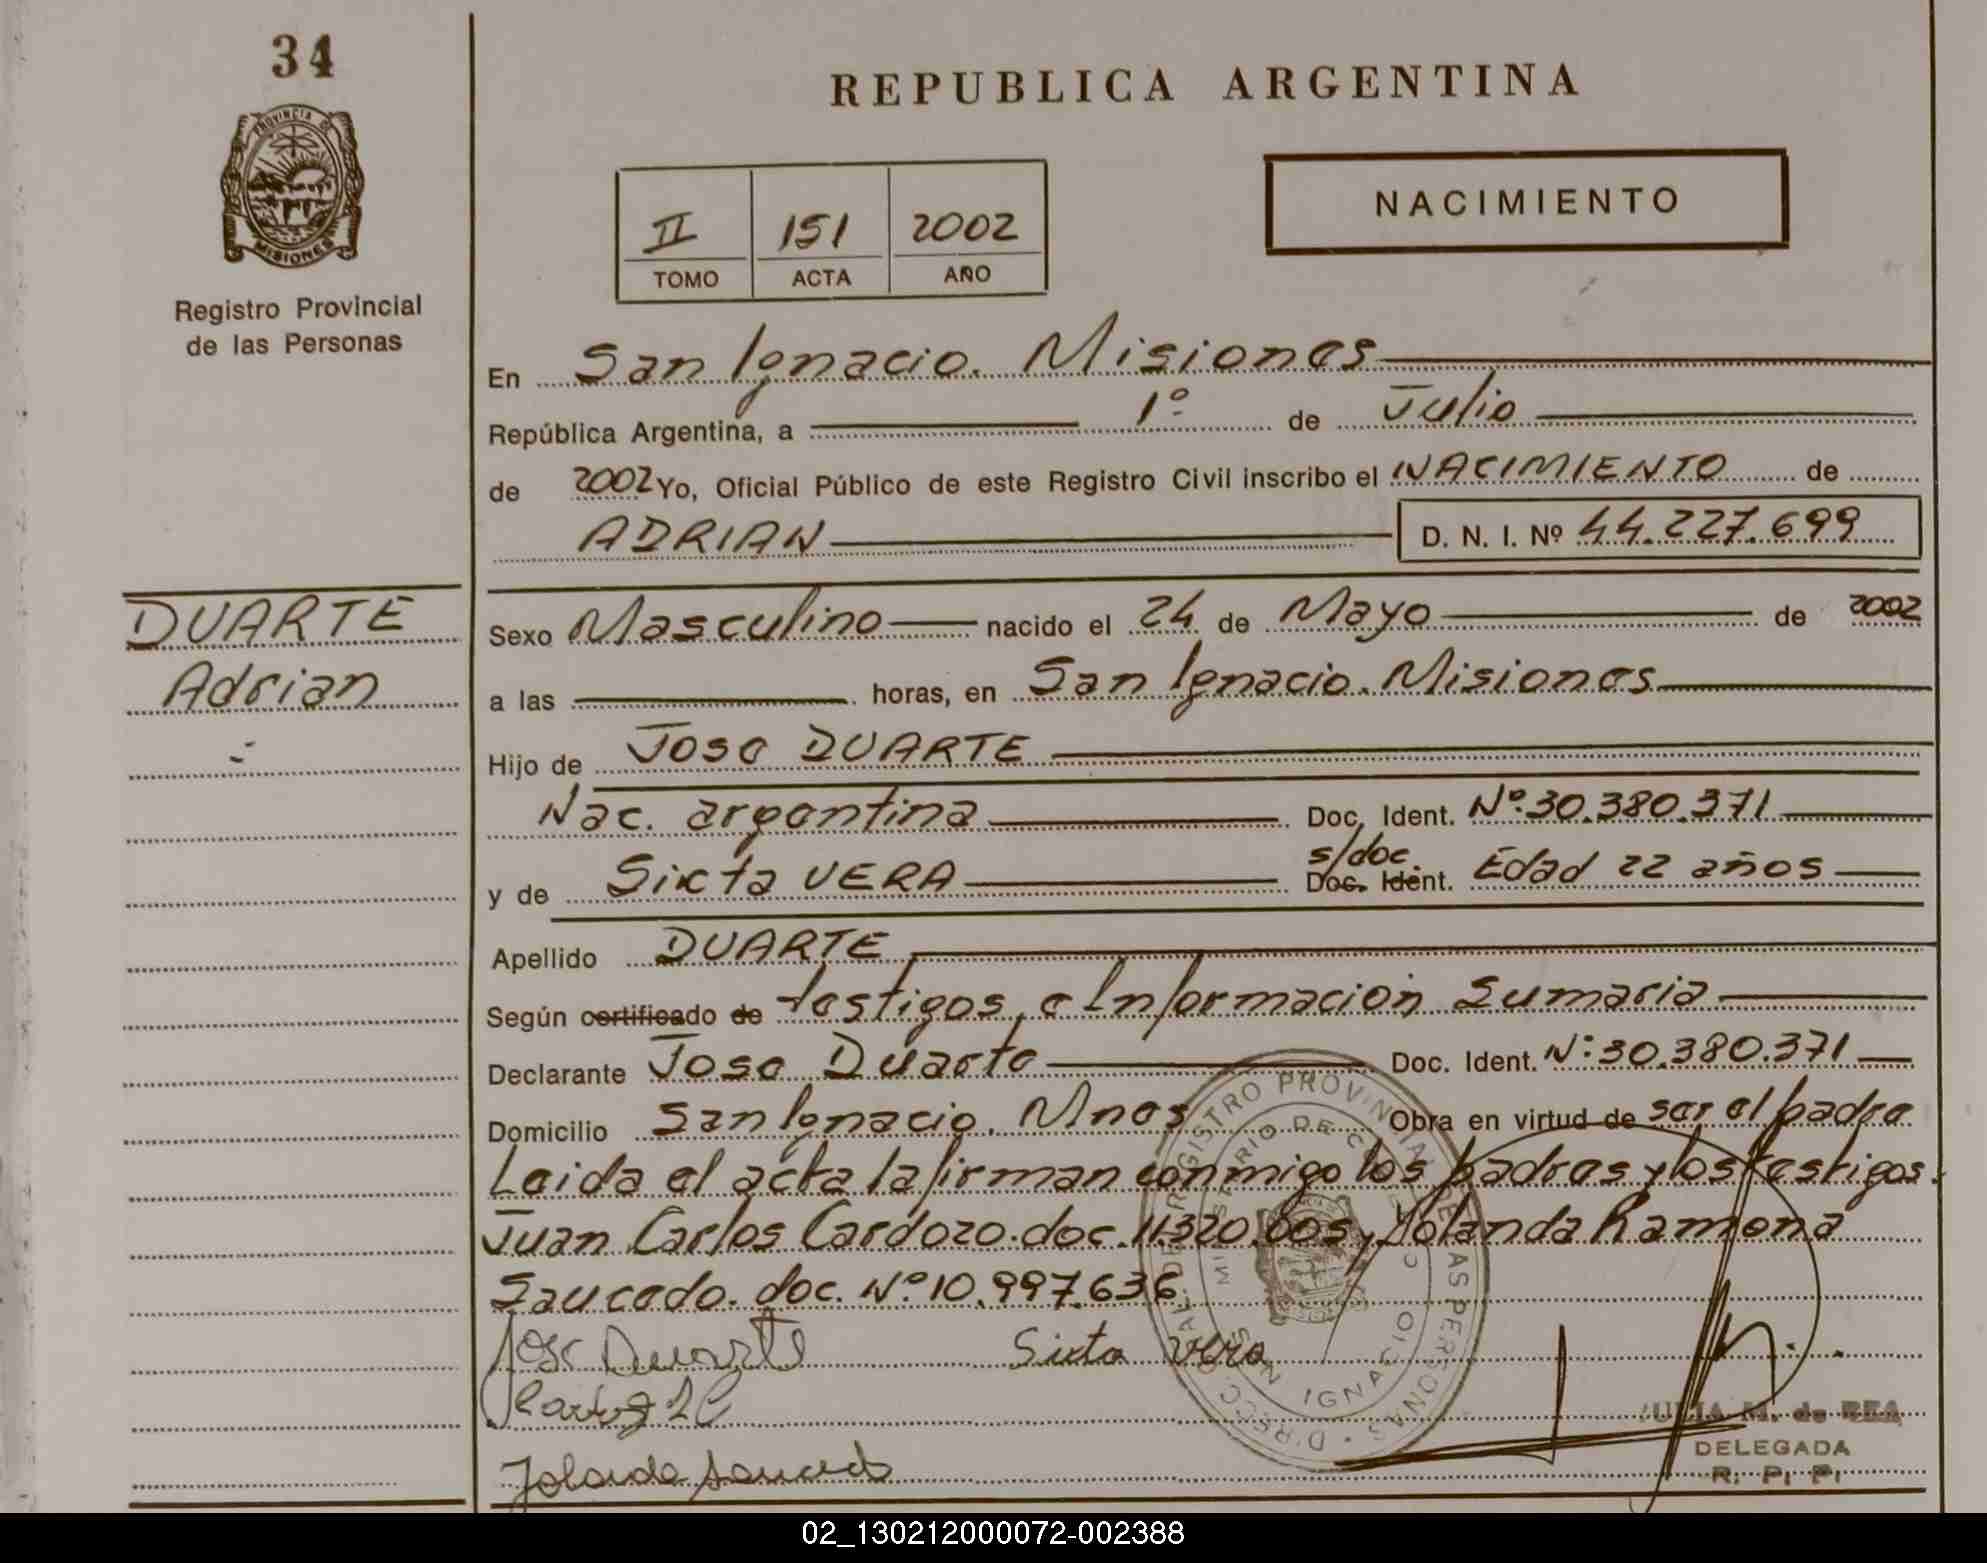 34
PROVINCIA DE
MISIONES
Registro Provincial
de las Personas
DUARTE
Adrian
REPUBLICA ARGENTINA
II 151 2002
TOMO ACTA AÑO
NACIMIENTO
En San Ignacio. Misiones
República Argentina, a 1º de Julio
de 2002 Yo, Oficial Público de este Registro Civil inscribo el NACIMIENTO de
ADRIAN D. N. I. Nº 44.227.699
Sexo Masculino nacido el 24 de Mayo de 2002
a las horas, en San Ignacio. Misiones
Hijo de Jose DUARTE
Nac. argentina Doc. Ident. Nº:30.380.371
s/doc.
y de Sixta VERA Doc. Ident. Edad 22 años
Apellido DUARTE
Según certificado de testigos, e Información Sumaria
Declarante Jose Duarte Doc. Ident. Nº:30.380.371
Domicilio San Ignacio. Mnes Obra en virtud de ser el padre
Leida el acta la firman conmigo los padres y los testigos.
Juan Carlos Cardozo. doc. 11.320.005, Yolanda Ramona
Saucedo. doc. Nº 10.997.636
Jose Duarte Sixta Vera
Yolanda Saucedo
REGISTRO PROVINCIAL DE LAS PERSONAS
SAN IGNACIO
JULIA M. de REA
DELEGADA
R. P. P.
02_130212000072-002388